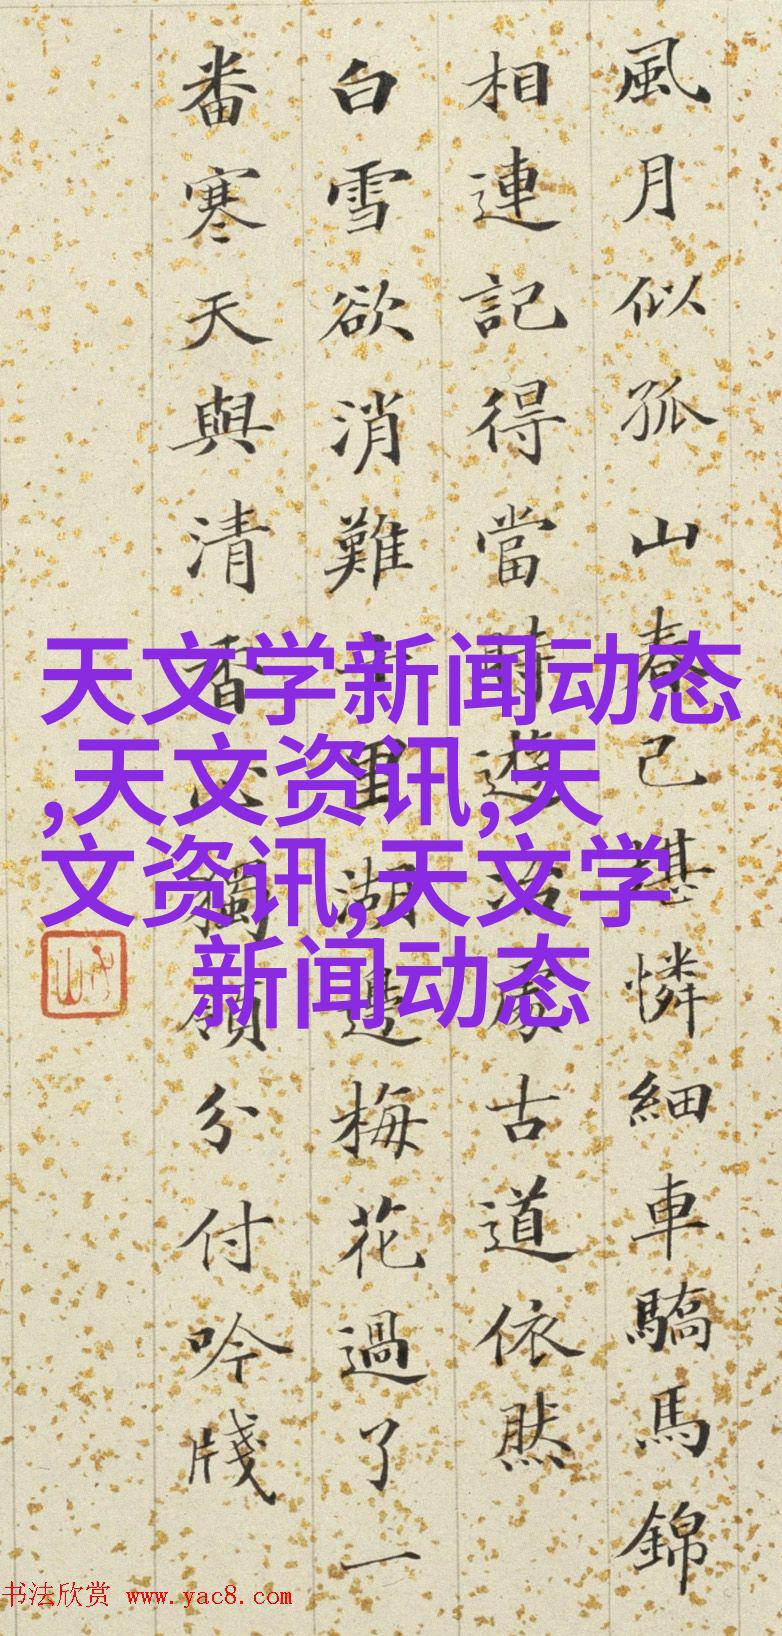 風月似孤山春已堪憐細車驕馬錦
相連記得當時遊冶處古道依然
白雪欲消難十里湖邊梅花過了一
番寒天與清香心獨領分付吟牋
天文学新闻动态
,天文资讯,天
文资讯,天文学
新闻动态
书法欣赏 www.yac8.com